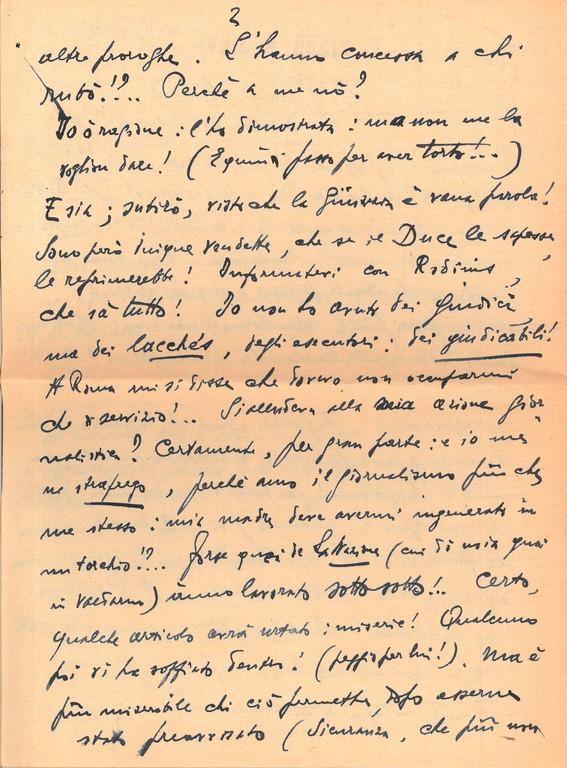 3
altre proroghe. L'hanno concessa a chi
rubò!?.. Perchè a me nò?
Io ò ragione: l'ho dimostrata: ma non me la
voglion dare! (E quindi passo per aver torto!...)
E sia; subirò, visto che la Giustizia è vana parola!
Sono però inique vendette, che se il Duce le sapesse,
le reprimerebbe! Informatevi con
che sà tutto! Io non ho avuto dei giudici,
ma dei lacchés, degli esecutori: dei giudicabili!
A Roma mi si disse che dovevo non occuparmi
che di servizio!... Si allendeva alla mia azione gior-
nalistica? Certamente, per gran parte: e io me
ne strafrego, perchè amo il giornalismo più che
me stesso: mia madre deve avermi ingenerato in
un torchio!?... Forse quei de La Nazione (cui di
in Valdarno) ànno lavorato sotto sotto!.. Certo,
qualche articolo avrà urtato: miserie! Qualcuno
poi vi ha soffiato dentro! (peggio per lui!). Ma è
più miserabile chi ciò permette, dopo esserne
stato preavvisato (Sicuranza, che più non